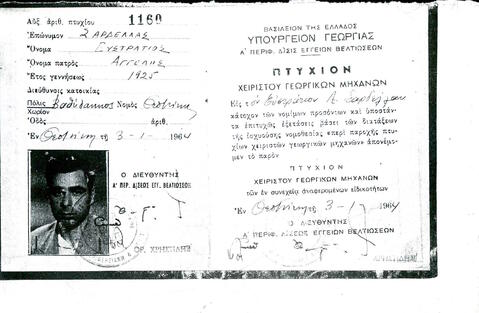 Αὔξ ἀριθ. πτυχίου 1160
Ἐπώνυμον ΣΑΡΔΕΛΛΑΣ
Ὄνομα ΕΥΣΤΡΑΤΙΟΣ
Ὄνομα πατρὸς ΑΓΓΕΛΗΣ
Ἔτος γεννήσεως 1925
Διεύθυνσις κατοικίας
Πόλις Νομὸς Θεσ/νίκης
Χωρίον
Ὁδὸς ἀριθ.
Ἐν Θεσ/νίκῃ τῇ 3-1-1964
Ο ΔΙΕΥΘΥΝΤΗΣ
Α' ΠΕΡ. ΔΙΣΕΩΣ ΕΓΓ. ΒΕΛΤΙΩΣΕΩΣ
ΒΑΣΙΛΕΙΟΝ ΤΗΣ ΕΛΛΑΔΟΣ
ΥΠΟΥΡΓΕΙΟΝ ΓΕΩΡΓΙΑΣ
Α' ΠΕΡΙΦ. ΔΙΣΙΣ ΕΓΓΕΙΩΝ ΒΕΛΤΙΩΣΕΩΝ
ΠΤΥΧΙΟΝ
ΧΕΙΡΙΣΤΟΥ ΓΕΩΡΓΙΚΩΝ ΜΗΧΑΝΩΝ
Εἰς τὸν Εὐστράτιον Α. Σαρδέλλαν
κάτοχον τῶν νομίμων προσόντων καὶ ὑποστάν-
τα ἐπιτυχῶς ἐξετάσεις βάσει τῶν διατάξεων
τῆς ἰσχυούσης νομοθεσίας «περὶ παροχῆς πτυ-
χίων χειριστῶν γεωργικῶν μηχανῶν» ἀπονέμο-
μεν τὸ παρὸν
ΠΤΥΧΙΟΝ
ΧΕΙΡΙΣΤΟΥ ΓΕΩΡΓΙΚΩΝ ΜΗΧΑΝΩΝ
τῶν ἐν συνεχείᾳ ἀναφερομένων εἰδικοτήτων
Ἐν Θεσ/νίκῃ τῇ 3-1-1964
Ο ΔΙΕΥΘΥΝΤΗΣ
Α' ΠΕΡΙΦ. ΔΙΣΕΩΣ ΕΓΓΕΙΩΝ ΒΕΛΤΙΩΣΕΩΝ